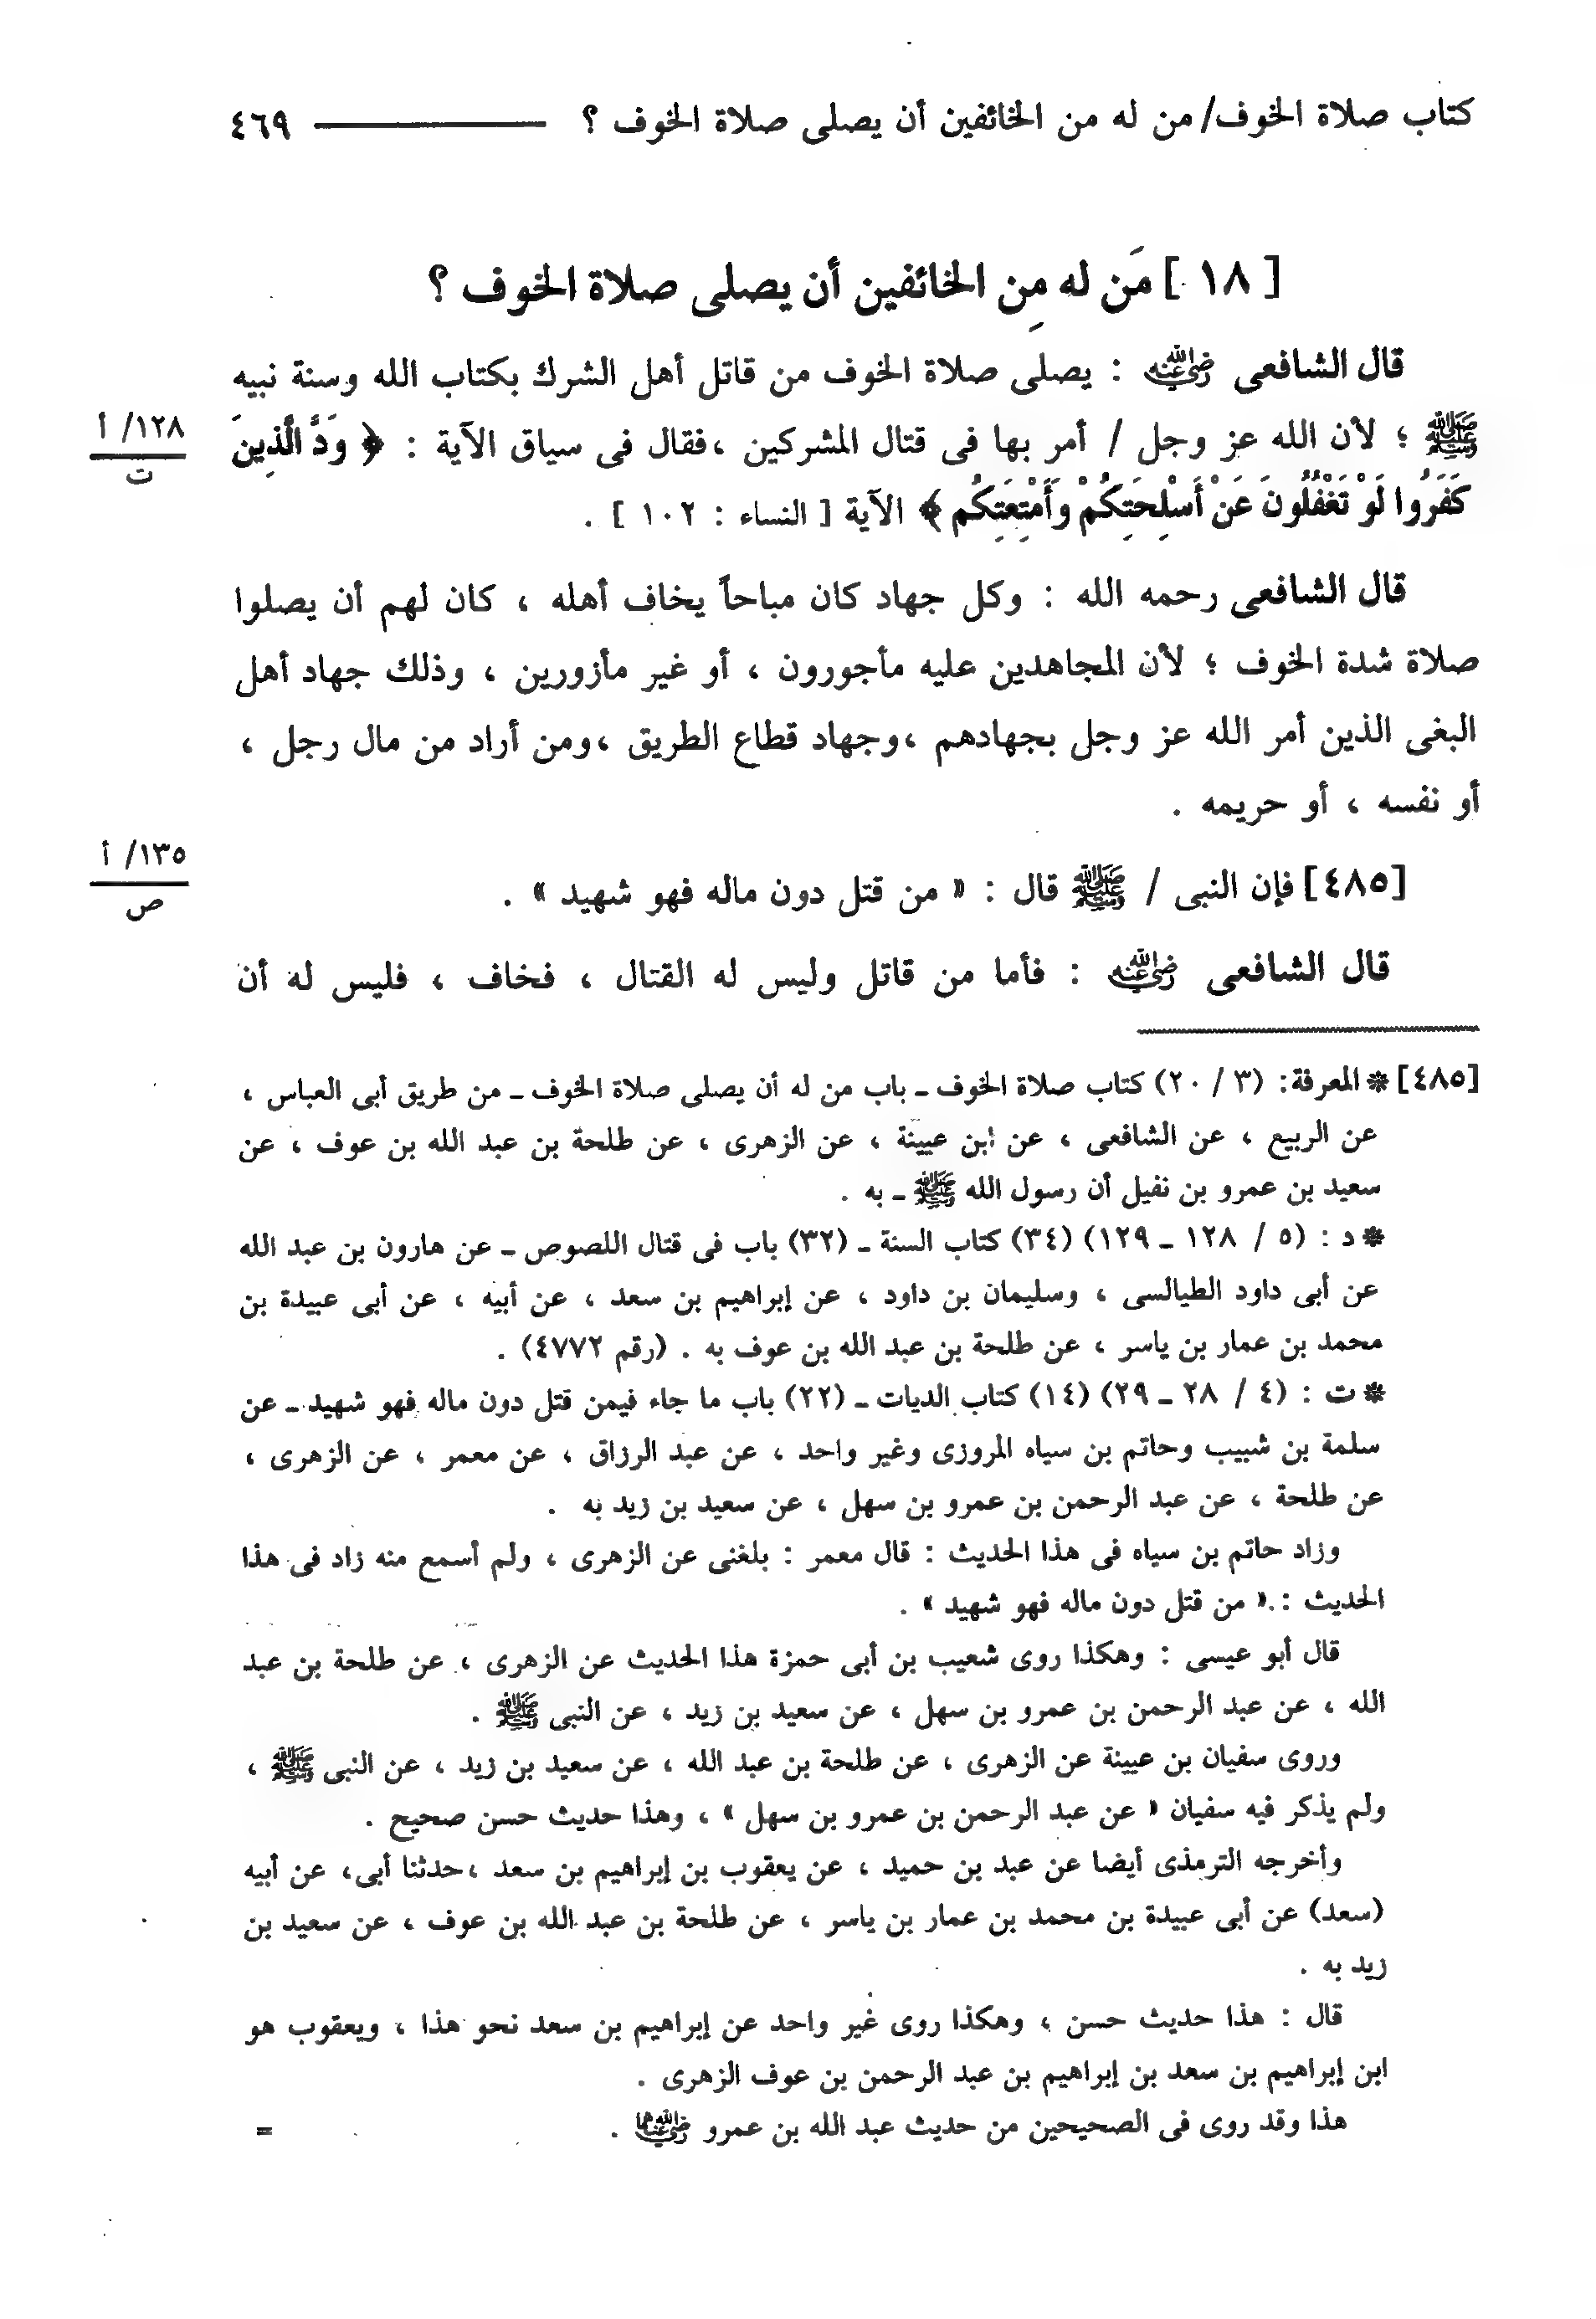 كتاب صلاة الخوف/ من له من الخائفين أن يصلى صلاة الخوف ؟ ٤٦٩
[ ١٨ ] مَن له مِن الخائفين أن يصلى صلاة الخوف ؟
قال الشافعى رضي الله عنه : يصلى صلاة الخوف من قاتل أهل الشرك بكتاب الله وسنة نبيه
ﷺ ؛ لأن الله عز وجل / أمر بها فى قتال المشركين ،فقال فى سياق الآية : ﴿ وَدَّ الَّذِينَ
١٢٨/ أ
ت
كَفَرُوا لَوْ تَغْفُلُونَ عَنْ أَسْلِحَتِكُمْ وَأَمْتِعَتِكُم ﴾ الآية [ النساء : ١٠٢ ] .
قال الشافعى رحمه الله : وكل جهاد كان مباحاً يخاف أهله ، كان لهم أن يصلوا
صلاة شدة الخوف ؛ لأن المجاهدين عليه مأجورون ، أو غير مأزورين ، وذلك جهاد أهل
البغى الذين أمر الله عز وجل بجهادهم ،وجهاد قطاع الطريق ،ومن أراد من مال رجل ،
أو نفسه ، أو حريمه .
[٤٨٥] فإن النبى / ﷺ قال : « من قتل دون ماله فهو شهيد » .
١٣٥/ أ
ص
قال الشافعى رضي الله عنه : فأما من قاتل وليس له القتال ، فخاف ، فليس له أن
[٤٨٥] * المعرفة: (٣ / ٢٠) كتاب صلاة الخوف ـ باب من له أن يصلى صلاة الخوف ـ من طريق أبى العباس ،
عن الربيع ، عن الشافعى ، عن ابن عيينة ، عن الزهرى ، عن طلحة بن عبد الله بن عوف ، عن
سعيد بن عمرو بن نفيل أن رسول الله ﷺ ـ به .
* د : (٥ / ١٢٨ ـ ١٢٩) (٣٤) كتاب السنة ـ (٣٢) باب فى قتال اللصوص ـ عن هارون بن عبد الله
عن أبى داود الطيالسى ، وسليمان بن داود ، عن إبراهيم بن سعد ، عن أبيه ، عن أبى عبيدة بن
محمد بن عمار بن ياسر ، عن طلحة بن عبد الله بن عوف به . (رقم ٤٧٧٢) .
* ت : (٤ / ٢٨ ـ ٢٩) (١٤) كتاب الديات ـ (٢٢) باب ما جاء فيمن قتل دون ماله فهو شهيد ـ عن
سلمة بن شبيب وحاتم بن سياه المروزى وغير واحد ، عن عبد الرزاق ، عن معمر ، عن الزهرى ،
عن طلحة ، عن عبد الرحمن بن عمرو بن سهل ، عن سعيد بن زيد به .
وزاد حاتم بن سياه فى هذا الحديث : قال معمر : بلغنى عن الزهرى ، ولم أسمع منه زاد فى هذا
الحديث : « من قتل دون ماله فهو شهيد » .
قال أبو عيسى : وهكذا روى شعيب بن أبى حمزة هذا الحديث عن الزهرى ، عن طلحة بن عبد
الله ، عن عبد الرحمن بن عمرو بن سهل ، عن سعيد بن زيد ، عن النبى ﷺ .
وروى سفيان بن عيينة عن الزهرى ، عن طلحة بن عبد الله ، عن سعيد بن زيد ، عن النبى ﷺ ،
ولم يذكر فيه سفيان « عن عبد الرحمن بن عمرو بن سهل » ، وهذا حديث حسن صحيح .
وأخرجه الترمذى أيضا عن عبد بن حميد ، عن يعقوب بن إبراهيم بن سعد ،حدثنا أبى، عن أبيه
(سعد) عن أبى عبيدة بن محمد بن عمار بن ياسر ، عن طلحة بن عبد الله بن عوف ، عن سعيد بن
زيد به .
قال : هذا حديث حسن ، وهكذا روى غير واحد عن إبراهيم بن سعد نحو هذا ، ويعقوب هو
ابن إبراهيم بن سعد بن إبراهيم بن عبد الرحمن بن عوف الزهرى .
هذا وقد روى فى الصحيحين من حديث عبد الله بن عمرو رضي الله عنهما . =